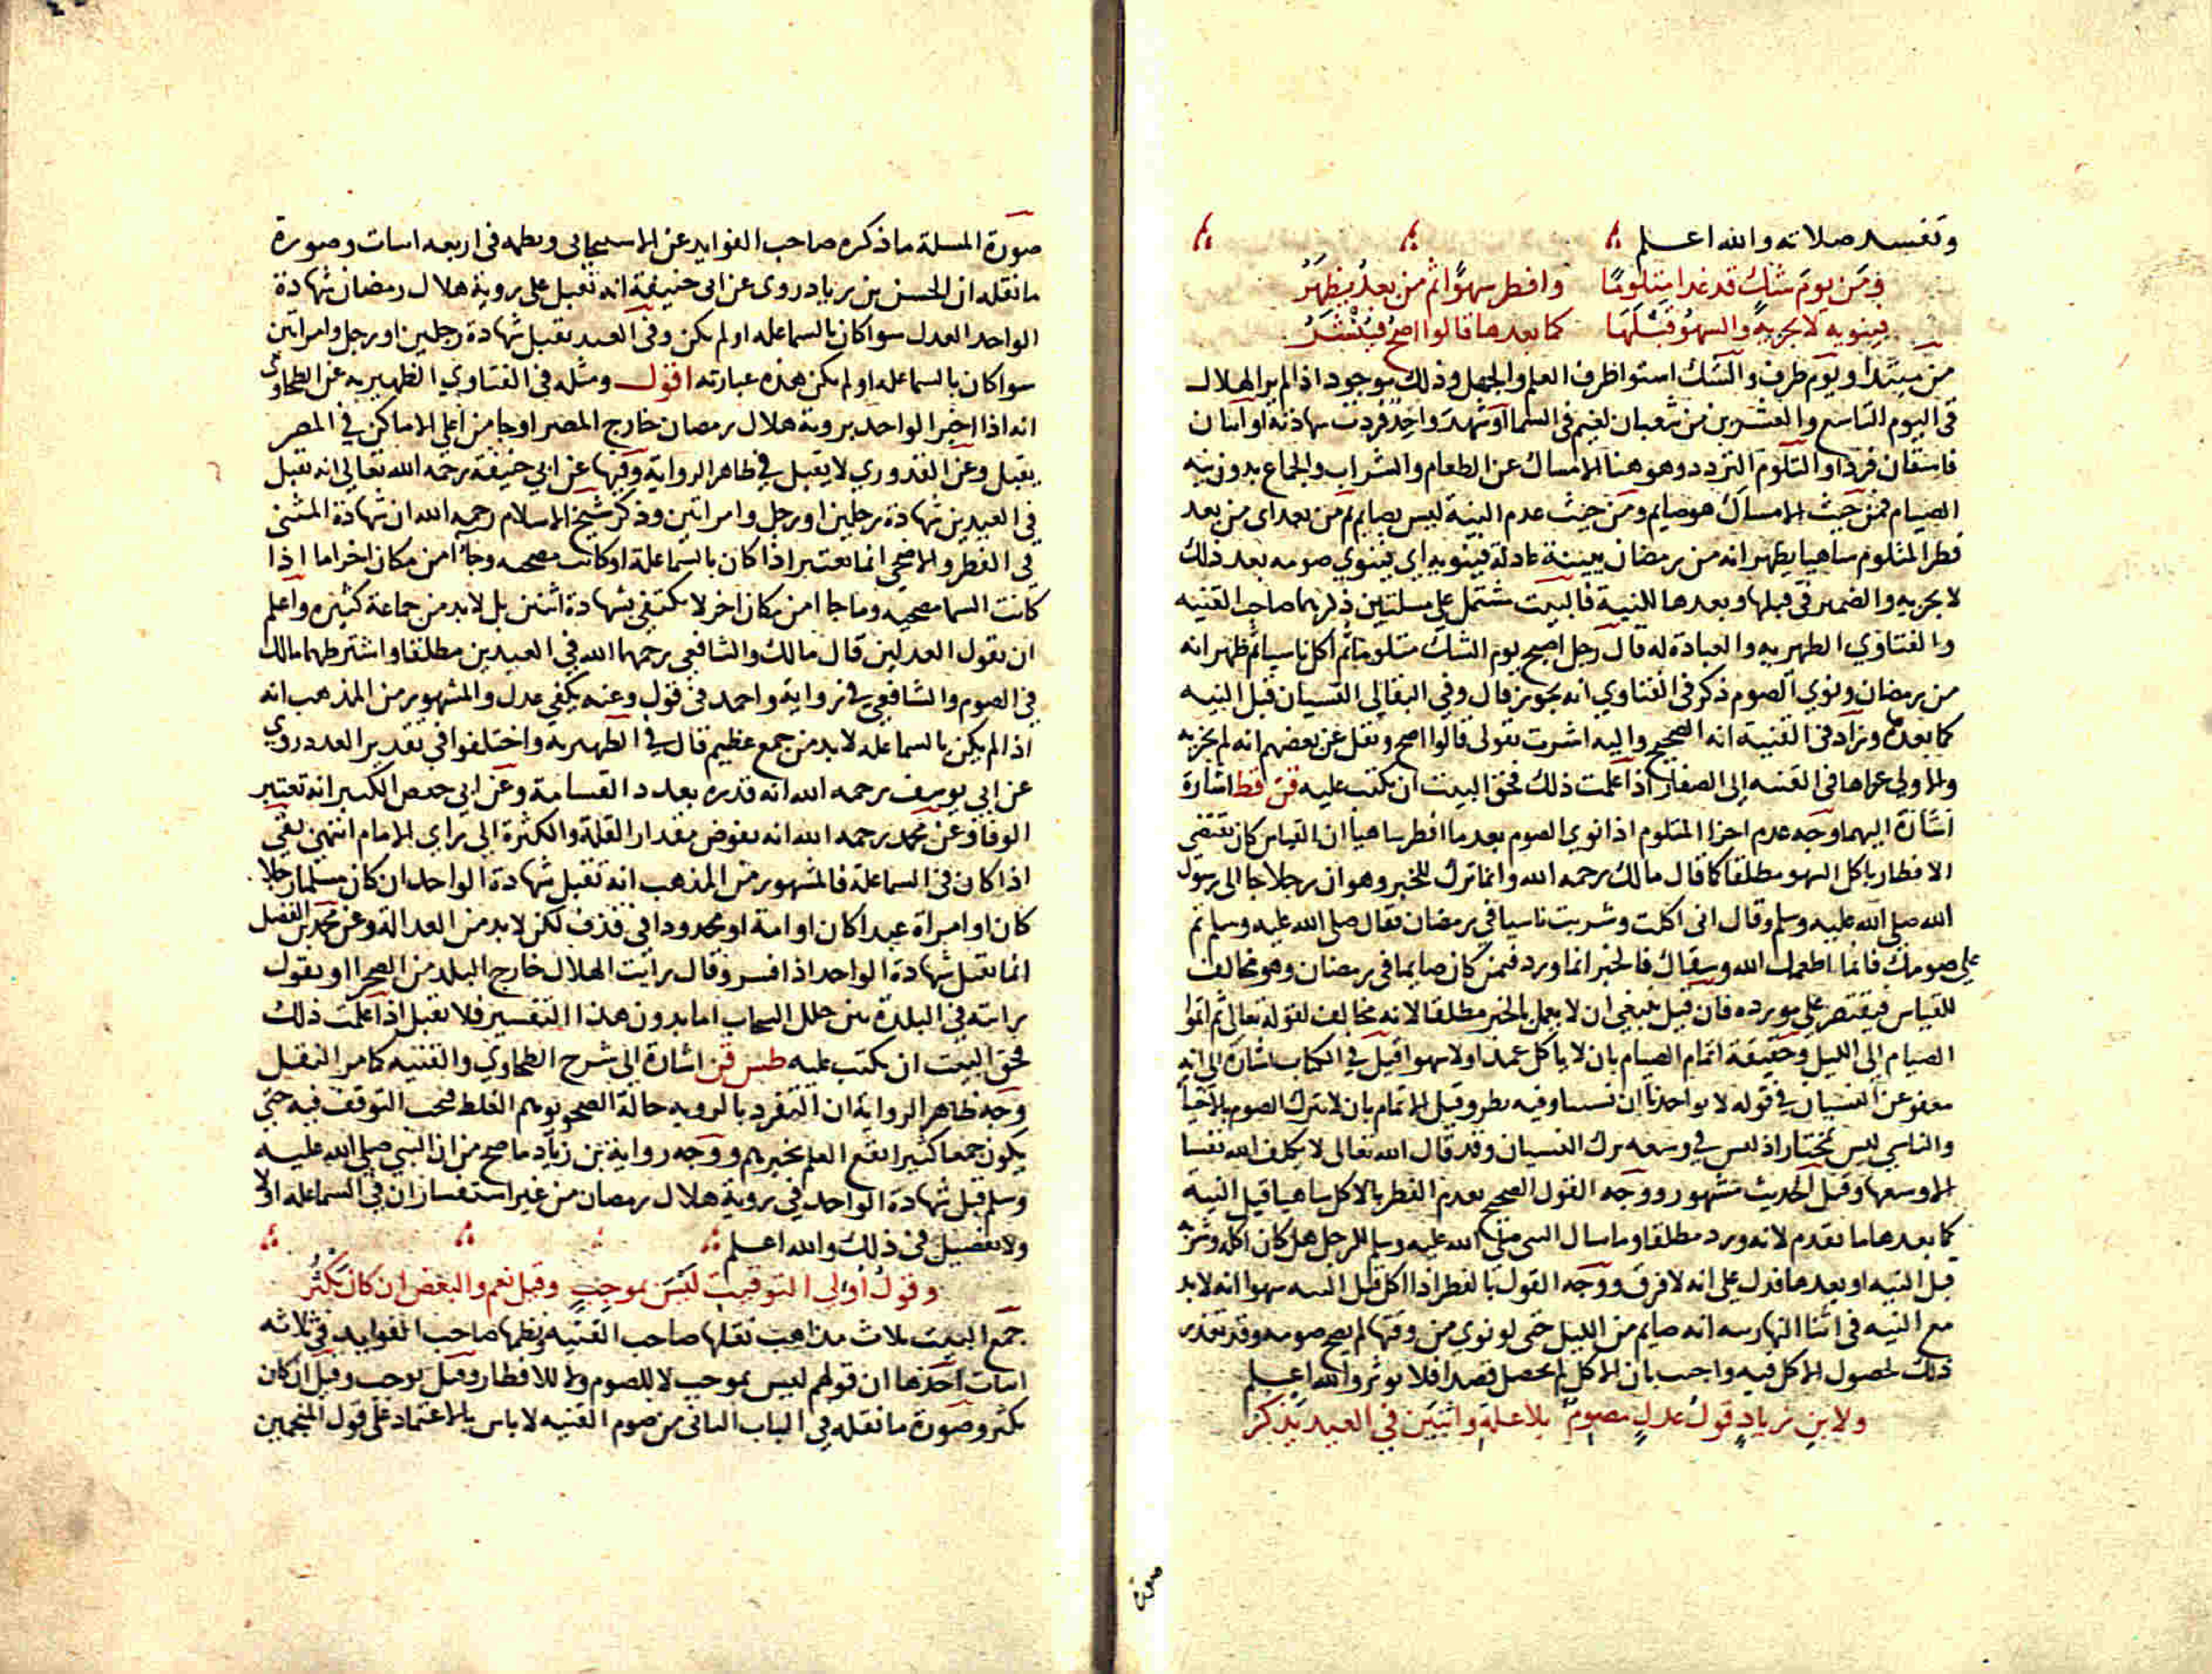 وتفسد صلاته والله اعلم
ومن يوم شك قد غدا متلوما وافطر سهوا ثم من بعد يظهر
فينويه لا يجزيه والسهو قبلها كما بعدها قالوا اصح فينشر
من مبتدا ويوم ظرف والشك استوا طرف العلم والجهل وذلك موجود اذا لم ير الهلال
في اليوم التاسع والعشرين من شعبان لغيم في السما او شهد واحد فردت شهادته او اثنان
فاسقان فردا والتلوم التردد وهو هنا الامساك عن الطعام والشراب والجماع بدون نية
الصيام فمن حيث الامساك هو صايم ومن حيث عدم النية ليس بصايم ثم من بعد اى من بعد
فطر المتلوم ساهيا يظهر انه من رمضان ببينة عادلة فينويه اي ينوي صومه بعد ذلك
لا يجزيه والضمير في قبلها وبعدها للنية فالبيت مشتمل على مسلتين ذكرهما صاحب القنيه
والفتاوي الظهيريه والعبادة له قال رجل اصبح يوم الشك متلوما ثم اكل ناسيا ثم ظهر انه
من رمضان ونوي الصوم ذكر في الفتاوي انه يجوز قال وفي البقالي النسيان قبل النيه
كما بعدها وزاد في القنية انه الصحيح واليه اشرت بقولى قالوا اصح ونقل عن بعضهم انه لم يجزيه
والاولي عزاها في القنيه الى الصفار اذا علمت ذلك فحق البيت ان يكتب عليه قن قط اشارة
اشارة اليهما وجه عدم اجزا المتلوم اذا نوي الصوم بعد ما افطر ساهيا ان القياس كان يقتضى
الافطار باكل السهو مطلقا كما قال مالك رحمه الله وانما ترك للخبر وهو ان رجلا جا الى رسول
الله صلى الله عليه وسلم وقال انى اكلت وشربت ناسيا في رمضان فقال صلى الله عليه وسلم تم
على صومك فانما اطعمك الله وسقاك فالخبر انما ورد فيمن كان صايما في رمضان وهو مخالف
للقياس فيقتصر على مورده فان قيل ينبغي ان لا يعمل بالخبر مطلقا لانه مخالف لقوله تعالى ثم اتموا
الصيام الى الليل وحقيقة اتمام الصيام بان لا ياكل عمدا ولا سهوا قيل في الكتاب اشارة الى انه
معفو عن النسيان في قوله لا تواخذنا ان نسينا وفيه نظر وقيل الاتمام بان لا يترك الصوم بالاختيا
والناسي ليس بمختار اذ ليس في وسعه ترك النسيان وقد قال الله تعالى لا يكلف الله نفسا
الا وسعها وقيل الحديث مشهور ووجه القول الصحيح بعدم الفطر بالاكل ساهيا قبل النية
كما بعدها ما تقدم لانه ورد مطلقا وما سال النبي صلى الله عليه وسلم الرجل هل كان اكله وشربه
قبل النيه او بعدها فدل على انه لا فرق ووجه القول بالفطر اذا اكل قبل النيه سهوا انه لا بد
مع النيه في اثنا النهار انه صايم من الليل حتى لو نوي من وقتها لم يصح صومه وقد تعذر
ذلك لحصول الاكل فيه واجيب بان الاكل لم يحصل قصدا فلا يوثر والله اعلم
ولابن زياد قول عدل مصوم بلا علة واثنين في العيد يذكر
صورة
صورة المسلة ما ذكره صاحب الفوايد عن الاسبيجابى ونظمه فى اربعه ابيات وصورة
ما نقله ان الحسن بن زياد روى عن ابى حنيفة انه تقبل على روية هلال رمضان شهادة
الواحد العدل سوا كان بالسما علة او لم يكن وفى العيد تقبل شهادة رجلين او رجل وامراتين
سوا كان بالسما علة او لم يكن هذه عبارته اقول ومثله فى الفتاوي الظهيريه عن الطحاوى
انه اذا اخبر الواحد بروية هلال رمضان خارج المصر او جا من اعلي الاماكن في المصر
يقبل وعن القدوري لا يقبل في ظاهر الرواية وفيها عن ابي حنيفة رحمه الله تعالى انه تقبل
في العيدين شهادة رجلين او رجل وامراتين وذكر شيخ الاسلام رحمه الله ان شهادة المثنى
في الفطر والاضحي انما تعتبر اذا كان بالسما علة او كانت مصحيه وجاا من مكان اخر اما اذا
كانت السما مصحيه وما جاا من مكان اخر لا يكتفي بشهادة اثنين بل لابد من جماعة كثيره واعلم
ان بقول العدلين قال مالك والشافعي رحمهما الله في العيدين مطلقا واشترطهما مالك
في الصوم والشافعي في رواية واحمد في قول وعنه يكفي عدل والمشهور من المذهب انه
اذا لم يكن بالسما علة لابد من جمع عظيم قال في الظهيريه واختلفوا في تقدير العدد روي
عن ابي يوسف رحمه الله انه قدره بعدد القسامة وعن ابي حفص الكبير انه تعتبر
الوفا وعن محمد رحمه الله انه يفوض مقدار القلة والكثرة الى راي الامام انتهى بقي
اذا كان في السما علة فالمشهور من المذهب انه تقبل شهادة الواحد ان كان مسلما رجلا
كان او امراة عبدا كان او امة او محدودا في قذف لكن لابد من العدالة وعن محمد بن الفضل
انما تقبل شهادة الواحد اذا فسر وقال رايت الهلال خارج البلد من الصحرا او يقول
رايته في البلدة من خلل السحاب اما بدون هذا التفسير فلا تقبل اذا علمت ذلك
فحق البيت ان يكتب عليه طس قن اشارة الى شرح الطحاوي والقنيه كما مر النقل
وجه ظاهر الرواية ان التفرد بالرويه حالة الصحو يوهم الغلط فيجب التوقف فيه حتى
يكون جمعا كثيرا يقع العلم بخبرهم ووجه رواية بن زياد ما صح من ان النبي صلى الله عليه
وسلم قبل شهادة الواحد في روية هلال رمضان من غير استفسار ان في السما علة اولا
ولا تفصيل في ذلك والله اعلم
وقول اولى التوقيت ليس بموجب وقيل نعم والبعض ان كان يكثر
جمع البيت ثلاث مذاهب نقلها صاحب القنيه ونظمها صاحب الفوايد في ثلاثه
ابيات احدها ان قولهم ليس بموجب لا للصوم ولا للافطار وقيل يوجب وقيل ان كان
يكثر وصورة ما نقله في الباب الثانى من صوم القنيه لا باس بالاعتماد على قول المنجمين